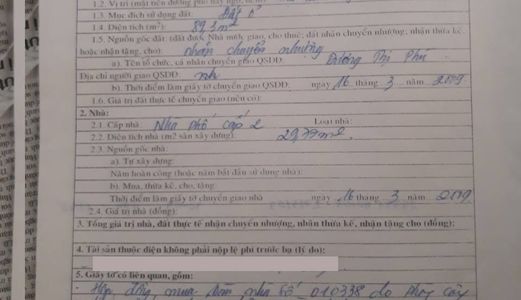 1.2. Vị trí (mặt tiền đường phố hay ngõ, hẻm):
1.3. Mục đích sử dụng đất: Đất ở
1.4. Diện tích (m2): m2
1.5. Nguồn gốc đất: (đất được Nhà nước giao, cho thuê; đất nhận chuyển nhượng; nhận thừa kế
hoặc nhận tặng, cho): nhận chuyển nhượng
a). Tên tổ chức, cá nhân chuyển giao QSDĐ: Dương Thị Phú
Địa chỉ người giao QSDĐ: nh
b). Thời điểm làm giấy tờ chuyển giao QSDĐ: ngày 16 tháng 3 năm 2019
1.6. Giá trị đất thực tế chuyển giao (nếu có):
2. Nhà:
2.1. Cấp nhà: Nhà phố cấp 2 Loại nhà:
2.2. Diện tích nhà (m2 sàn xây dựng): 29,79 m2
2.3. Nguồn gốc nhà:
a). Tự xây dựng:
Năm hoàn công (hoặc năm bắt đầu sử dụng nhà):
b). Mua, thừa kế, cho, tặng:
Thời điểm làm giấy tờ chuyển giao nhà ngày 16 tháng 3 năm 2019
2.4. Giá trị nhà (đồng):
3. Tổng giá trị nhà, đất thực tế nhận chuyển nhượng, nhận thừa kế, nhận tặng cho (đồng):
4. Tài sản thuộc diện không phải nộp lệ phí trước bạ (lý do):
5. Giấy tờ có liên quan, gồm:
- Hợp đồng mua bán nhà số 010338 do